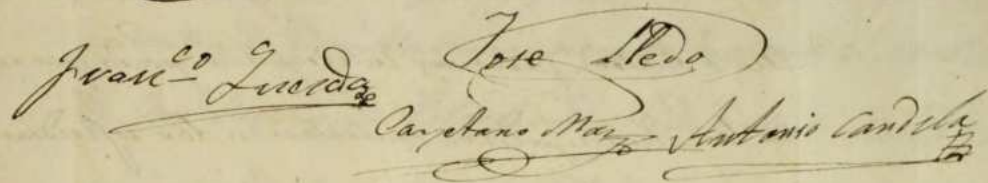 Franco Quesada Jose Lledo
Cayetano Mas Antonio Candela